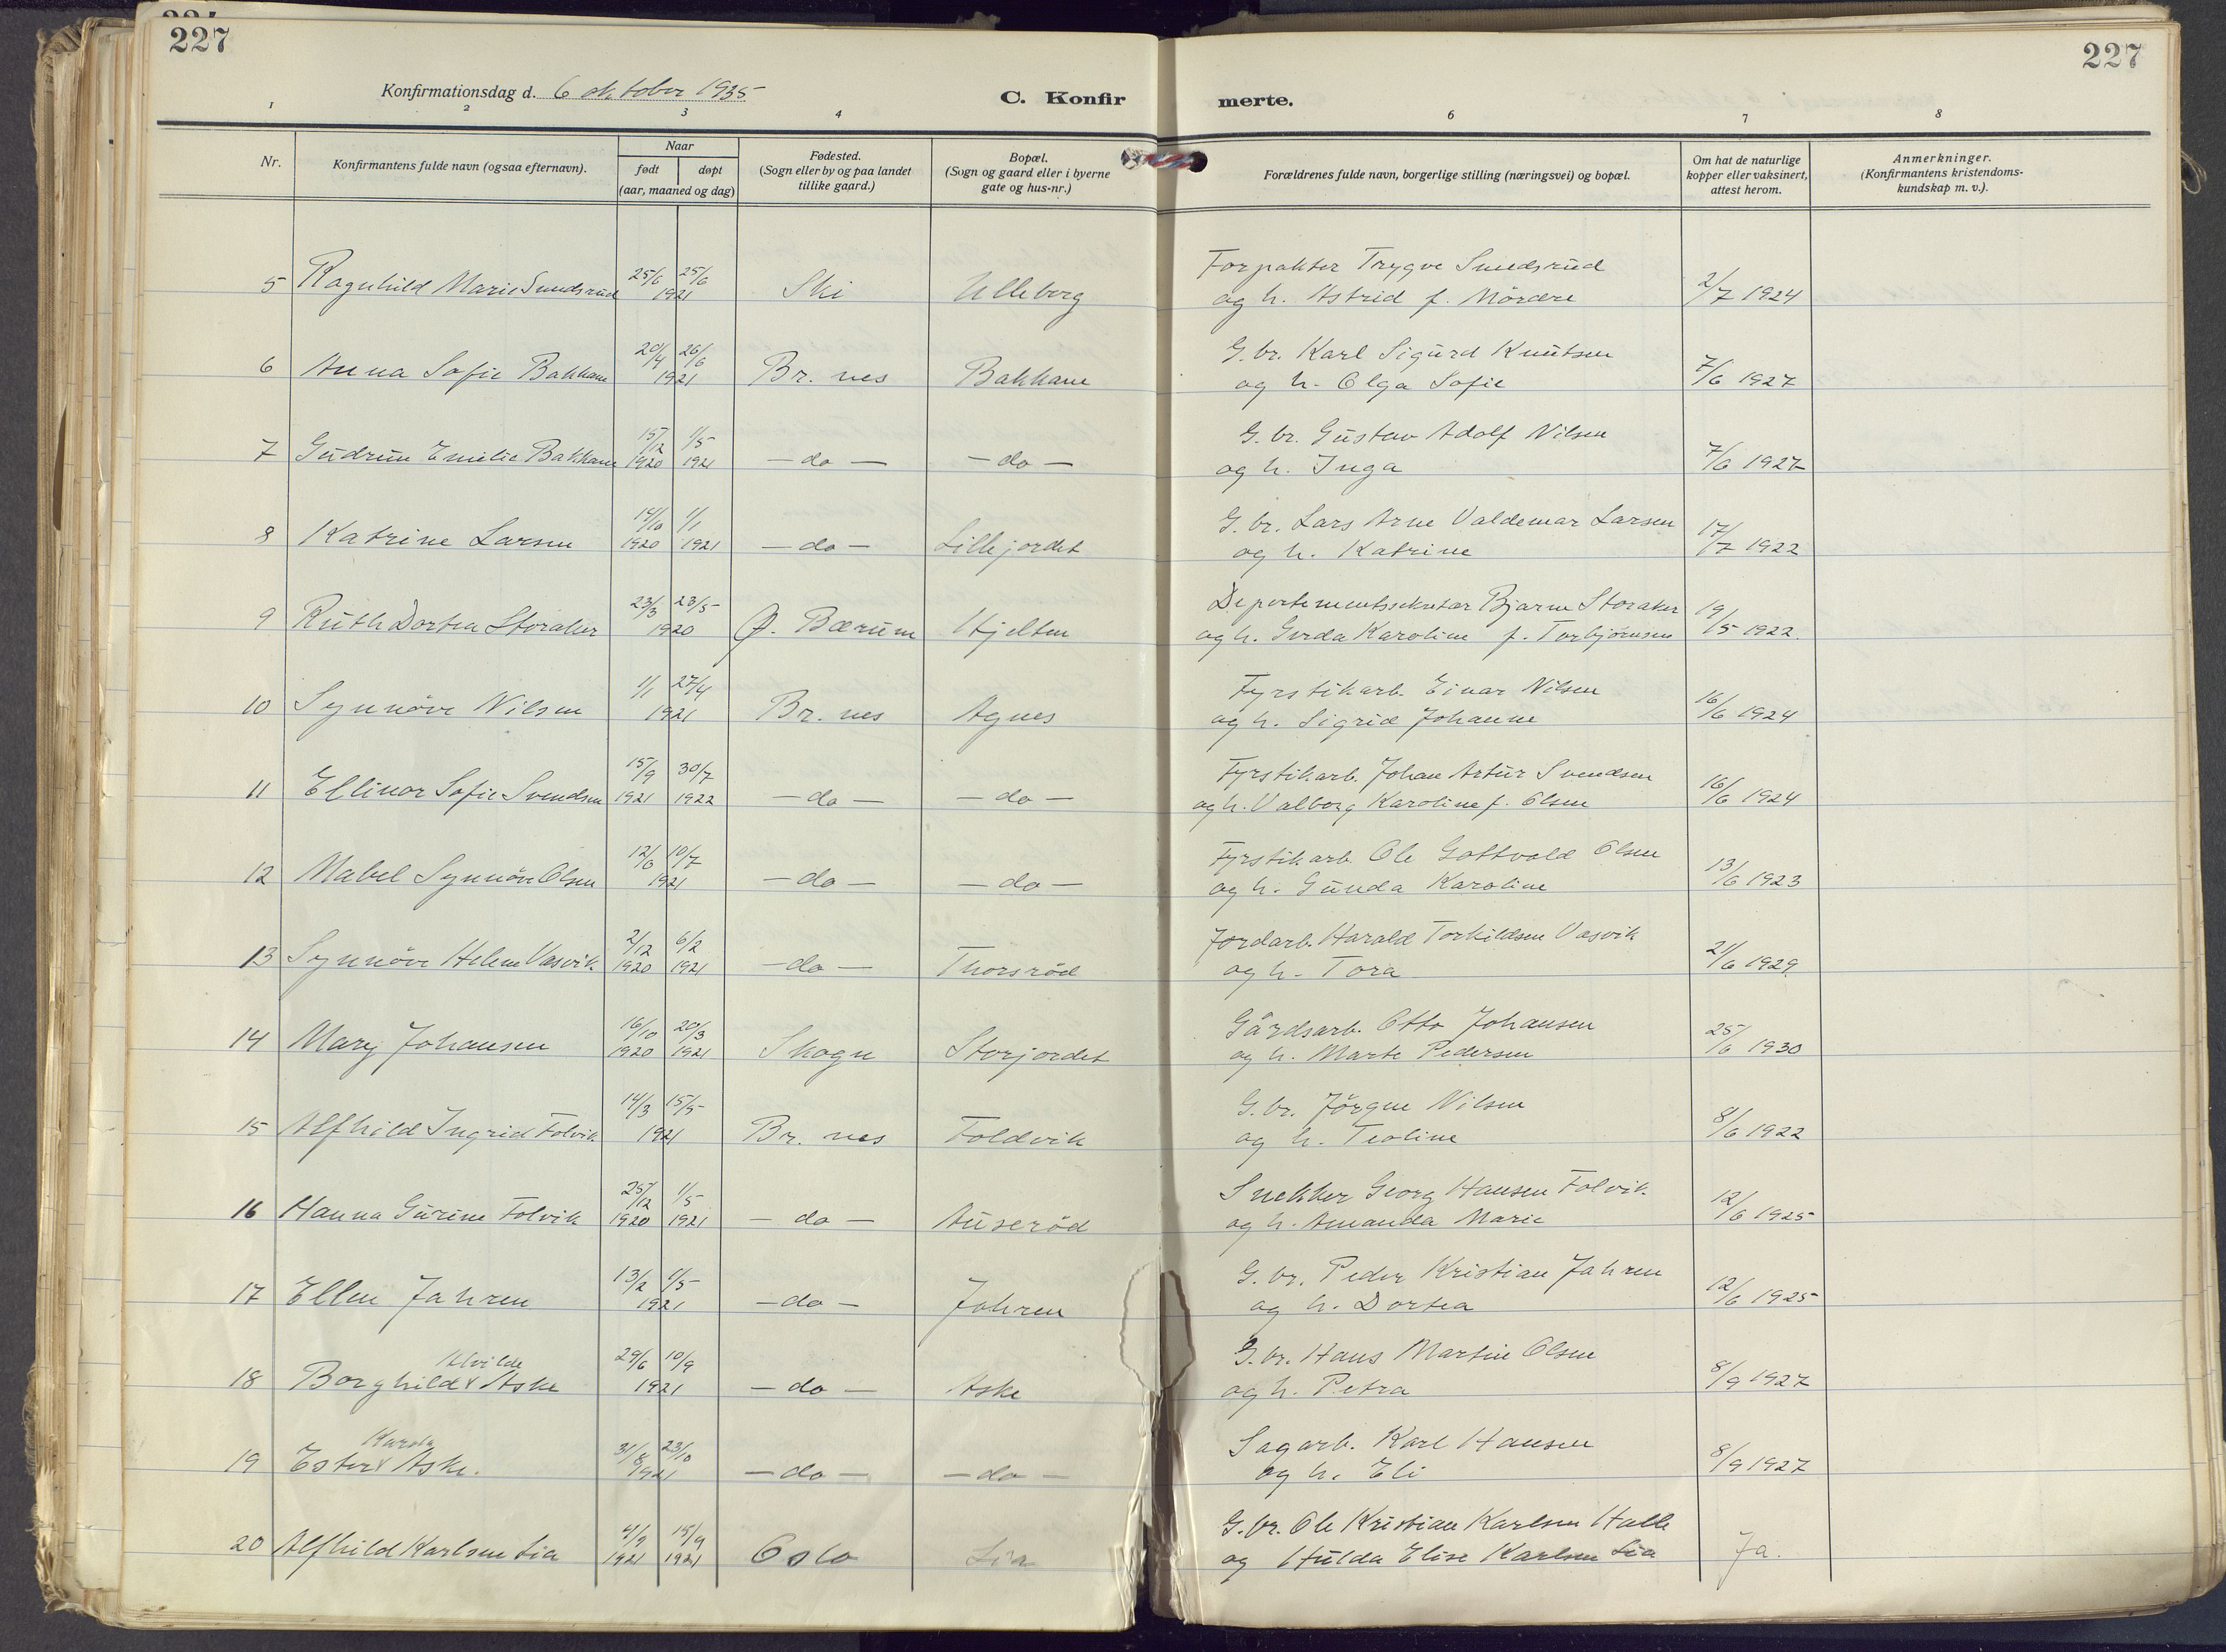 227
227
Konfirmationsdag d. 6 oktober 1935
C. Konfirmerte.
1 2 3 4 6 7 8
Nr.
Konfirmantens fulde navn (ogsaa efternavn).
Naar
født døpt
(aar, maaned og dag)
Fødested.
(Sogn eller by og paa landet
tillike gaard.)
Bopæl.
(Sogn og gaard eller i byerne
gate og hus-nr.)
Forældrenes fulde navn, borgerlige stilling (næringsvei) og bopæl.
Om hat de naturlige
kopper eller vaksinert,
attest herom.
Anmerkninger.
(Konfirmantens kristendoms-
kundskap m. v.).
25/6 25/6 Forpakter Trygve Smedsrud
5 Ragnhild Marie Smedsrud 1921 Ski Ulleberg og h. Astrid f. Mördre 2/7 1924
20/4 26/6 G.br. Karl Sigurd Knutsen
6 Anna Sofie Bakkane 1921 Br. nes Bakkane og h. Olga Sofie 7/6 1927
15/12 1/5 G.br. Gustav Adolf Nilsen
7 Gudrun Emilie Bakkane 1920 1921 — do — — do — og h. Inga 7/6 1927
14/10 1/1 G.br. Lars Arne Valdemar Larsen
8 Katrine Larsen 1920 1921 — do — Lillejordet og h. Katrine 17/7 1922
23/3 23/5 Departementssekretær Bjarne Storaker
9 Ruth Dortea Storaker 1920 Ø. Bærum Hjelten og h. Gerda Karoline f. Torbjørnsen 19/5 1922.
1/1 27/4 Fyrstikarb. Einar Nilsen
10 Synnöve Nilsen 1921 Br. nes Agnes og h. Sigrid Johanne 16/6 1924
15/9 30/7 Fyrstikarb. Johan Artur Svendsen
11 Ellinor Sofie Svendsen 1921 1922 — do — — do — og h. Valborg Karoline f. Olsen 16/6 1924
12/6 10/7 Fyrstikarb. Ole Gottvald Olsen
12 Mabel Synnöve Olsen 1921 — do — — do — og h. Gunda Karoline 13/6 1923
2/12 6/2 Jordarb. Harald Torkildsen Vasvik
13 Synnöve Helene Vasvik 1920 1921 — do — Thorsröd og h. Tora 21/6 1929.
16/10 20/3 Gårdsarb. Otto Johansen
14 Mary Johansen 1920 1921 Skogn Storjordet og h. Marte Pedersen 25/6 1930
14/3 15/5 G.br. Jörgen Nilsen
15 Alfhild Ingrid Folvik 1921 Br. nes Foldvik og h. Teoline 8/6 1922
25/12 1/5 Snekker Georg Hansen Folvik
16 Hanna Gurine Folvik 1920 1921 — do — Auseröd og h. Amanda Marie 12/6 1925
13/2 1/5 G.br. Peder Kristian Jahren
17 Ellen Jahren 1921 — do — Jahren og h. Dortea 12/6 1925
Alvilde 29/6 10/9 G.br. Hans Martin Olsen
18 Borghild Aske 1921 — do — Aske og h. Petra 8/9 1927
Karola 31/8 23/10 Sagarb. Karl Hansen
19 Ester Aske. 1921 — do — — do — og h. Eli 8/9 1927
4/9 15/9 G.br. Ole Kristian Karlsen Halle
20 Alfhild Karlsen Lia 1921 1921 Oslo Lia og Hulda Elise Karlsen Lia Ja.